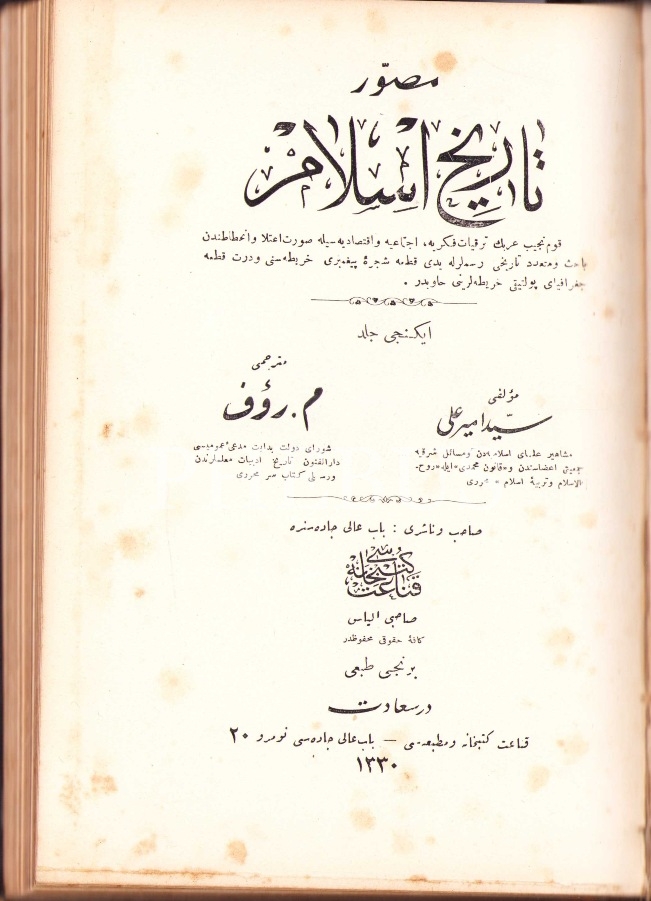 مصوّر
تاريخ اسلام
قوم نجيب عربك ترقيات فكريه، اجتماعيه واقتصاديه‌سيله صورت اعتلا وانحطاطندن
باحث ومتعدد تاريخی رسملرله يدی قطعه شجرۀ پيغمبری خريطه‌سنی ودرت قطعه
جغرافيای پولتيقی خريطه‌لرينی حاويدر .
ايكنجی جلد
مؤلفی
سيّد امير علی
مشاهير علمای اسلاميه‌دن ومسائل شرقيه
جمعيتی اعضاسندن و«قانون محمدی» ايله «روح
الاسلام وتربيۀ اسلام» محرری
مترجمی
م. رؤف
شورای دولت بدايت مدعی عموميسی
دارالفنون تاريخ ادبيات معلملرندن
ورسملی كتاب سر محرری
صاحب وناشری : باب عالی جاده‌سنده
قناعت كتبخانه‌سی
صاحبی الياس
كافۀ حقوقی محفوظدر
برنجی طبعی
درسعادت
قناعت كتبخانه ومطبعه‌سی — باب عالی جاده‌سی نومرو ٢٠
١٣٣٠